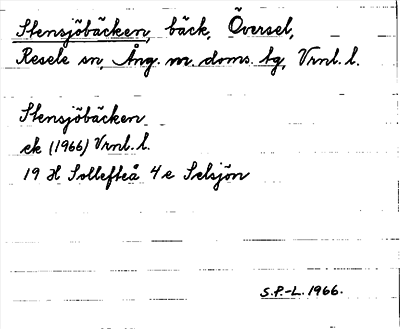 Stensjöbäcken, bäck, Översel,
Resele sn, Ång. m. doms. tg, Vrnl. l.
Stensjöbäcken
ek (1966) Vrnl. l.
19 H Sollefteå 4e Selsjön
S.P.-L. 1966.